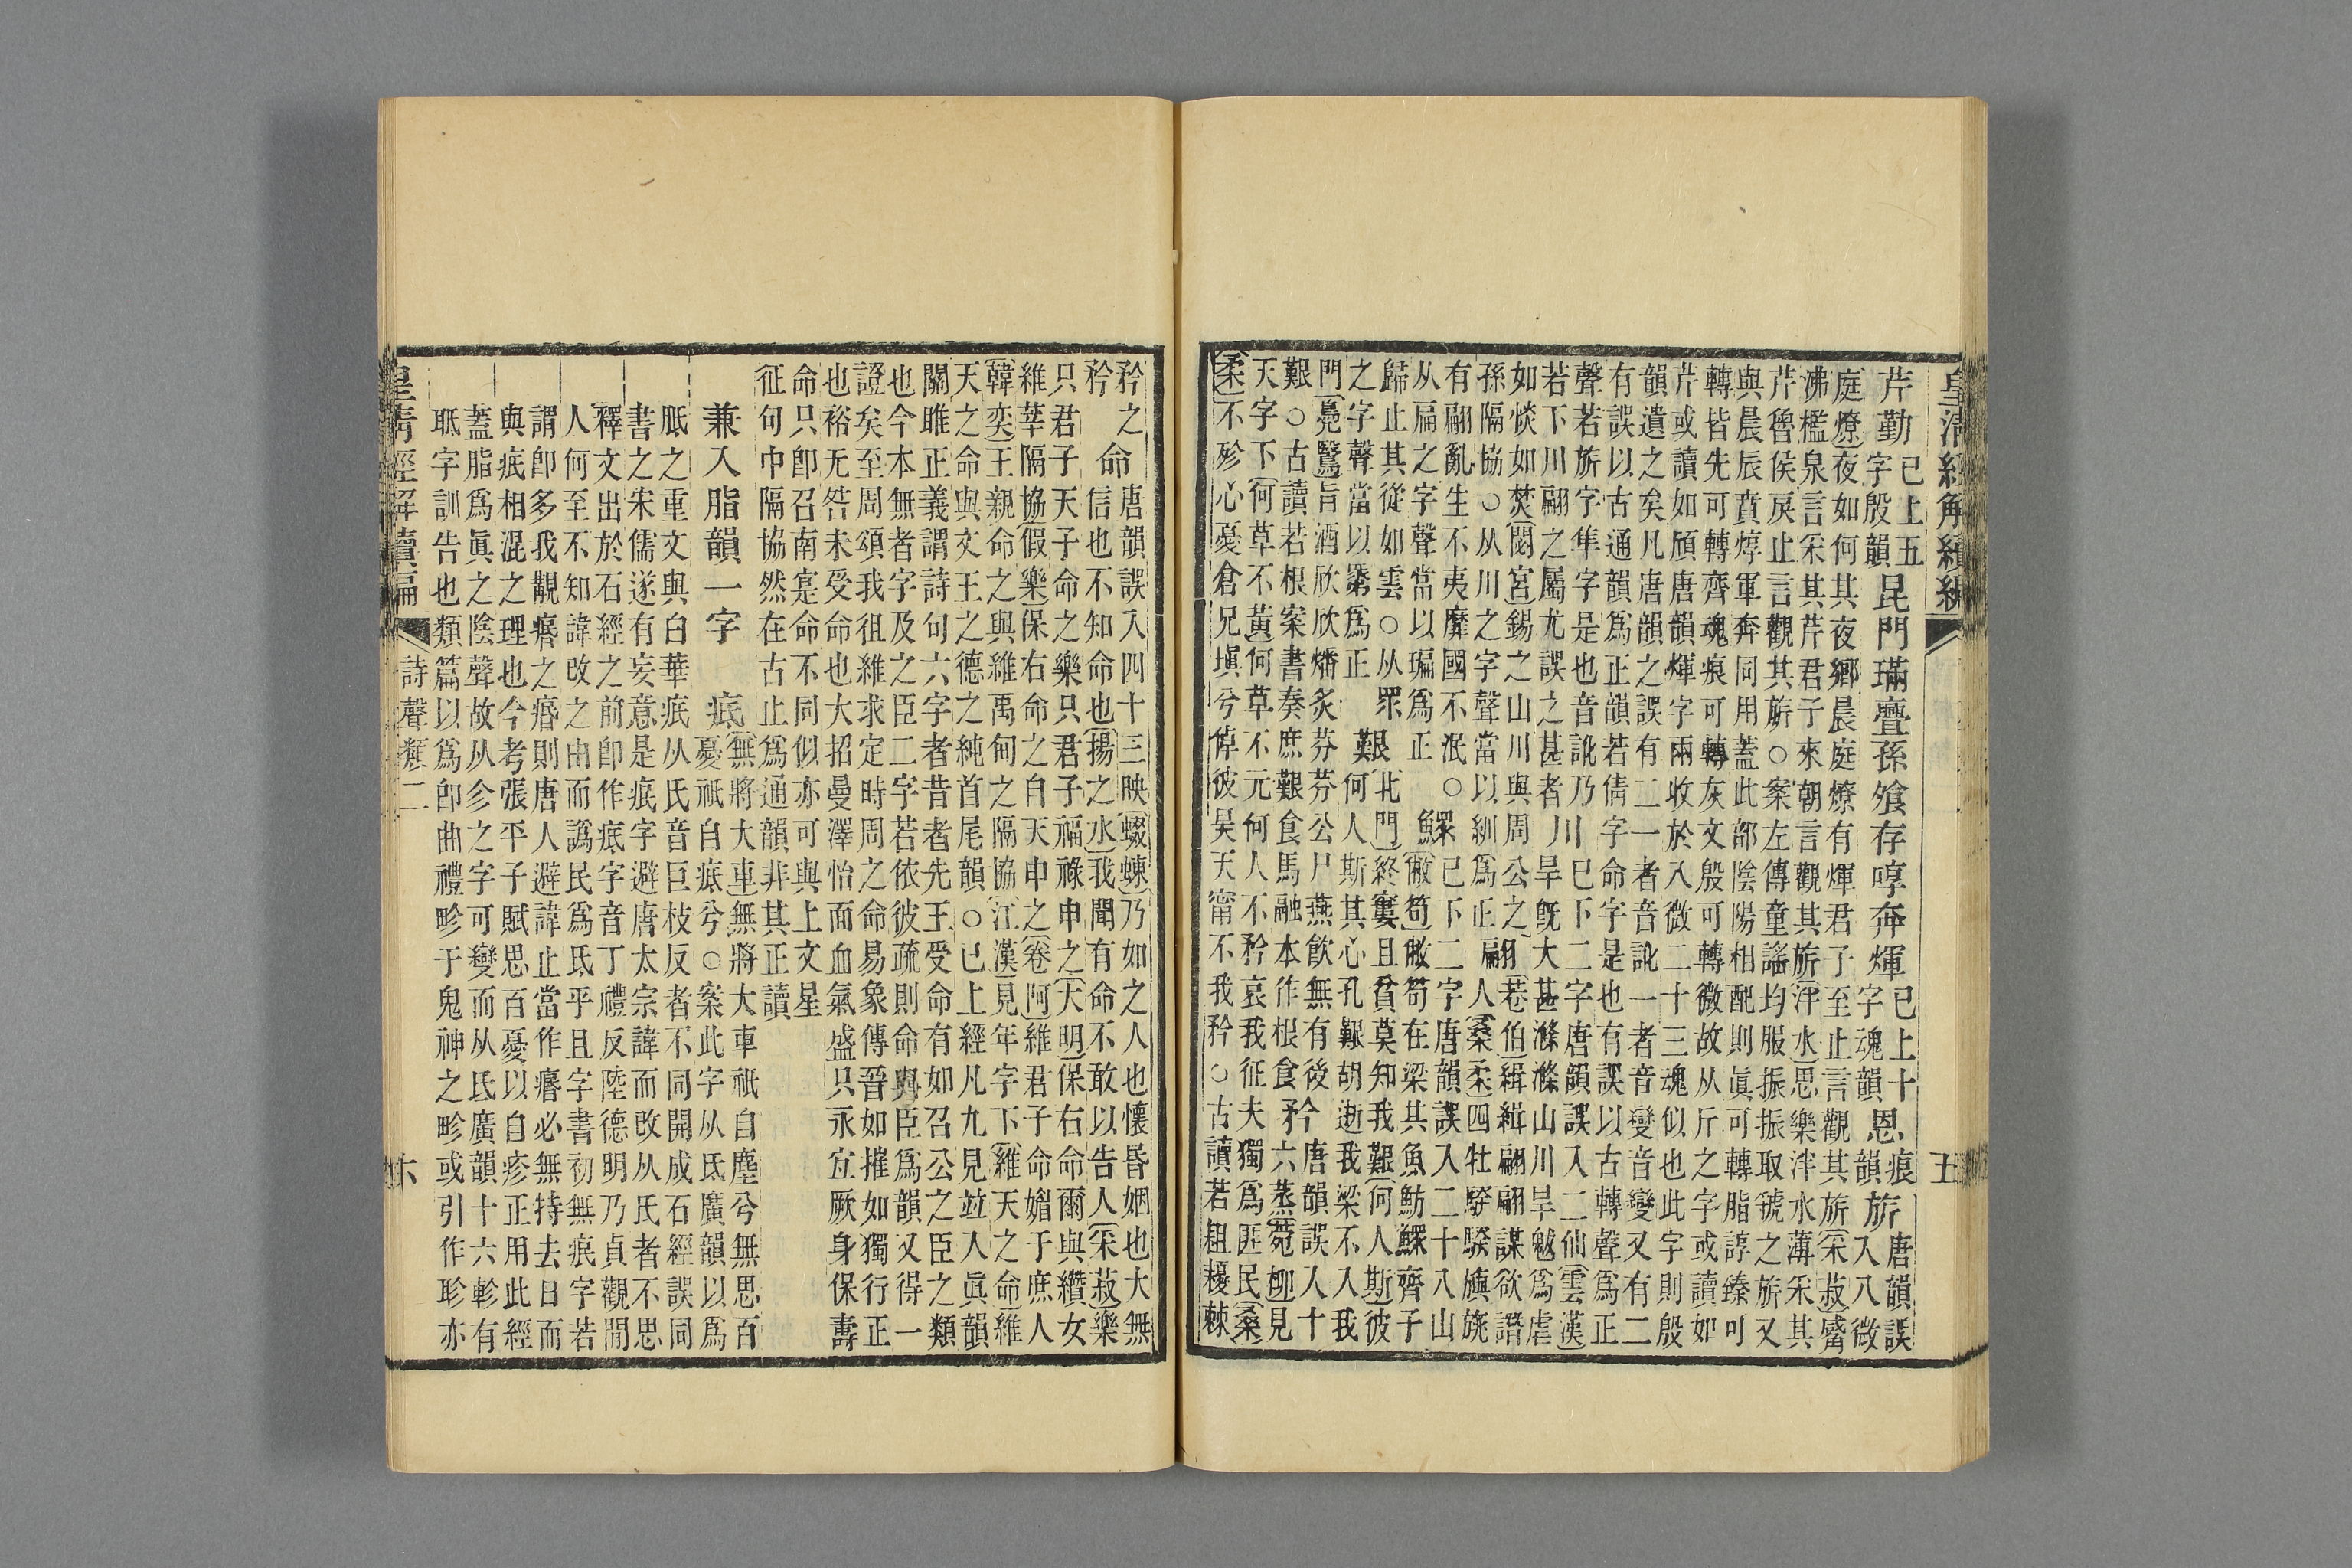 皇清經解續編 五
芹勤 已上五
字殷韻 昆門璊亹孫飧存哼奔煇 已上十
字魂韻 恩 痕
韻 旂 唐韻誤
入八微
庭燎夜如何其夜鄉晨庭燎有煇君子至止言觀其旂采菽觱
沸檻泉言采其芹君子來朝言觀其旂泮水思樂泮水薄采其
芹魯侯戾止言觀其旂○案左傳童謠均服振振取虢之旂又
與晨辰賁焞軍奔同用蓋此部陰陽相配則眞可轉脂諄臻可
轉皆先可轉齊魂痕可轉灰文殷可轉微故从斤之字或讀如
芹或讀如頎唐韻煇字兩收於八微二十三魂似也此字則殷
韻遺之矣凡唐韻之誤有二一者音訛一者音變音變又有二
有誤以古通韻爲正韻若倩字命字是也有誤以古轉聲爲正
聲若旂字隼字是也音訛乃
若下川翩之屬尤誤之甚者 川 巳下二字唐韻誤入二仙雲漢
旱旣大甚滌滌山川旱魃爲虐
如惔如焚閟宮錫之山川與周公之
孫隔協○从川之字聲當以訓爲正 翩 巷伯緝緝翩翩謀欲譖
人桑柔四牡騤騤旟旐
有翩亂生不夷靡國不泯○
从扁之字聲當以㻞爲正 鰥 已下二字唐韻誤入二十八山
敝笱敝笱在梁其魚魴鰥齊子
歸止其從如雲○从眔
之字聲當以爲正 艱 北門終窶且貧莫知我艱何人斯彼
何人斯其心孔艱胡逝我梁不入我
門鳧鷖旨酒欣欣燔炙芬芬公尸燕飲無有後
艱○古讀若根案書奏庶艱食馬融本作根食 矜 唐韻誤入十
六蒸菀柳見
天字下何草不黃何草不元何人不矜哀我征夫獨爲匪民桑
柔不殄心憂倉兄塡兮倬彼昊天甯不我矜○古讀若棘
矜之
矜 命 唐韻誤入四十三映蝃蝀乃如之人也懷昏姻也大無
信也不知命也揚之水我聞有命不敢以告人采菽樂
只君子天子命之樂只君子福祿申之大明保右命爾與纘女
維莘隔協假樂保右命之自天申之卷阿維君子命媚于庶人
韓奕王親命之與維禹甸之隔協江漢見年字下維天之命維
天之命與文王之德之純首尾韻○已上經凡九見竝入眞韻
關雎正義謂詩句六字者昔者先王受命有如召公之臣之類
也今本無者字及之臣二字若依彼疏則命與臣爲韻又得一
證矣至周頌我徂維求定時周之命易象傳晉如摧如獨行正
也裕无咎未受命也大招曼澤怡面血氣盛只永宜厥身保壽
命只卽召南寔命不同似亦可與上文星
征句中隔協然在古止爲通韻非其正讀
兼入脂韻一字
疷 無將大車無將大車祇自塵兮無思百
憂祇自疷兮○案此字从氐廣韻以爲
胝之重文與白華疷从氏音巨枝反者不同開成石經誤同
書之宋儒遂有妄意是疷字避唐太宗諱而改从氏者不思
釋文出於石經之前卽作疷字音丁禮反陸德明乃貞觀閒
人何至不知諱改之由而譌民爲氐乎且字書初無痻字若
謂卽多我覯痻之痻則唐人避諱止當作㾕必無特去日而
與疷相混之理也今考張平子賦思百憂以自疹正用此經
蓋脂爲眞之陰聲故从㐱之字可變而从氐廣韻十六軫有
胝字訓告也類篇以爲卽曲禮畛于鬼神之畛或引作聄亦
皇淸經解續編 詩聲類二 六